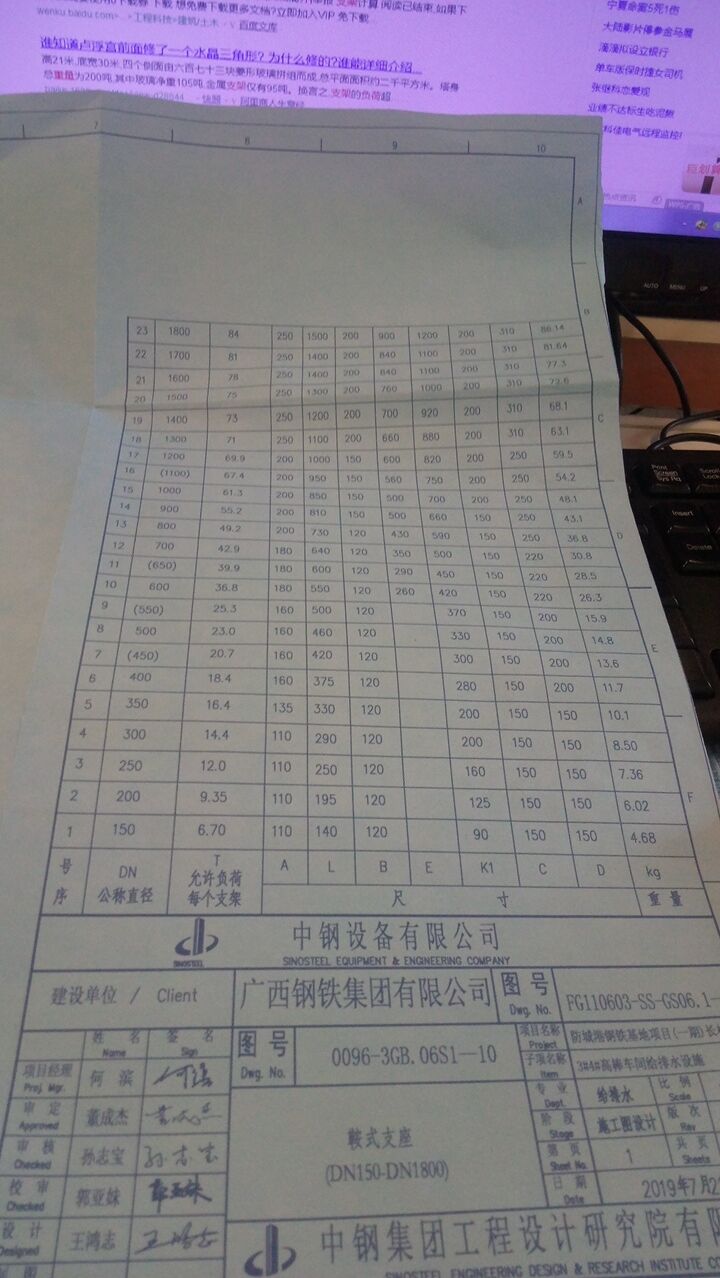 谁知道卢浮宫前面修了一个水晶三角形? 为什么修的?谁能详细介绍...
高21米,底宽30米,四个侧面由六百七十三块菱形玻璃拼组而成,总平面面积约二千平方米。塔身
总重量为200吨,其中玻璃净重105吨,金属支架仅有95吨。换言之,支架的负荷超
宁夏命案5死1伤
大陆影片停参金马展
滴滴拟设立银行
单车版保时捷女司机
张继科恋爱观
业绩不达标生吃泥鳅
科佳电气远程监控!
AUTO MENU
Print Screen Sys Rq
Scroll Lock
Insert
Delete
7 8 9 10
A
B
C
D
E
F
23 1800 84 250 1500 200 900 1200 200 310 86.14
22 1700 81 250 1400 200 840 1100 200 310 81.64
21 1600 78 250 1400 200 840 1100 200 310 77.3
20 1500 75 250 1300 200 760 1000 200 310 72.6
19 1400 73 250 1200 200 700 920 200 310 68.1
18 1300 71 250 1100 200 660 880 200 310 63.1
17 1200 69.9 200 1000 150 600 820 200 250 59.5
16 (1100) 67.4 200 950 150 560 750 200 250 54.2
15 1000 61.3 200 850 150 500 700 200 250 48.1
14 900 55.2 200 810 150 500 660 150 250 43.1
13 800 49.2 200 730 120 430 590 150 250 36.8
12 700 42.9 180 640 120 350 500 150 220 30.8
11 (650) 39.9 180 600 120 290 450 150 220 28.5
10 600 36.8 180 550 120 260 420 150 220 26.3
9 (550) 25.3 160 500 120 370 150 200 15.9
8 500 23.0 160 460 120 330 150 200 14.8
7 (450) 20.7 160 420 120 300 150 200 13.6
6 400 18.4 160 375 120 280 150 200 11.7
5 350 16.4 135 330 120 200 150 150 10.1
4 300 14.4 110 290 120 200 150 150 8.50
3 250 12.0 110 250 120 160 150 150 7.36
2 200 9.35 110 195 120 125 150 150 6.02
1 150 6.70 110 140 120 90 150 150 4.68
号 DN T A L B E K1 C D kg
序 公称直径 允许负荷 每个支架 尺 寸 重 量
中钢设备有限公司
SINOSTEEL SINOSTEEL EQUIPMENT & ENGINEERING COMPANY
建设单位 / Client 广西钢铁集团有限公司 图 号 Dwg. No. FG110603-SS-GS06.1-
姓 名 Name 签 名 Sign
图 号 Dwg. No. 0096-3GB.06S1--10
项目名称 Project 防城港钢铁基地项目(一期)长
子项名称 Item 3#4#高棒车间给排水设施
项目经理 Proj. Mgr. 何 滨
专 业 Dept. 给排水 比 例 Scale
审 定 Approved 董成杰
阶 段 Stage 施工图设计 版 次 Rev
审 核 Checked 孙志宝 孙志宝
鞍式支座
(DN150-DN1800)
第 页 Sheet No. 1 共 页 Sheets
校 审 Checked 郭亚妹 郭亚妹
日 期 Date 2019年7月2
设 计 Designed 王鸿志 王鸿志
中钢集团工程设计研究院有
SINOSTEEL ENGINEERING DESIGN & RESEARCH INSTITUTE CO